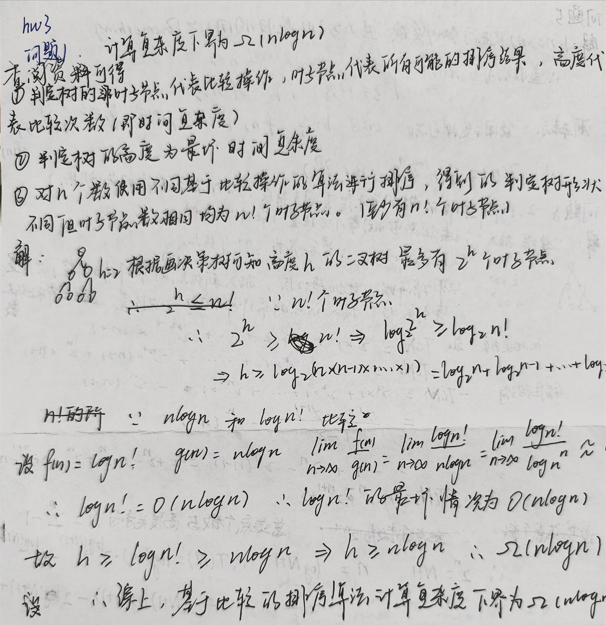 hw3
问题1. 计算复杂度下界为Ω(nlogn)
查阅资料可得
① 判定树的非叶子节点,代表比较操作,叶子节点,代表所有可能的排序结果,高度代
表比较次数(即时间复杂度)
② 判定树的高度为最坏时间复杂度
③ 对n个数使用不同基于比较操作的算法进行排序,得到的判定树形状
不同但叶子节点数相同均为n!个叶子节点。(至少有n!个叶子节点)
解: h=2 根据画决策树可知高度h的二叉树最多有2^h个叶子节点
∴ 2^h ≤ n! ∵ n!个叶子节点
∴ 2^h ≥ n! ⇒ log2^h ≥ log₂n!
⇒ h ≥ log₂(n×(n-1)×...×1) = log₂n + log₂n-1 + ... + log
∵ nlogn 和 logn! 比较。
设 f(n)=logn! g(n)=nlogn lim n→∞ f(n)/g(n) = lim n→∞ logn!/nlogn = lim n→∞ logn!/logn^n ≈
∴ logn! = O(nlogn) ∴ logn! 的最坏情况为 O(nlogn)
故 h ≥ logn! ≥ nlogn ⇒ h ≥ nlogn ∴ Ω(nlogn)
∴ 综上,基于比较的排序算法计算复杂度下界为Ω(nlogn